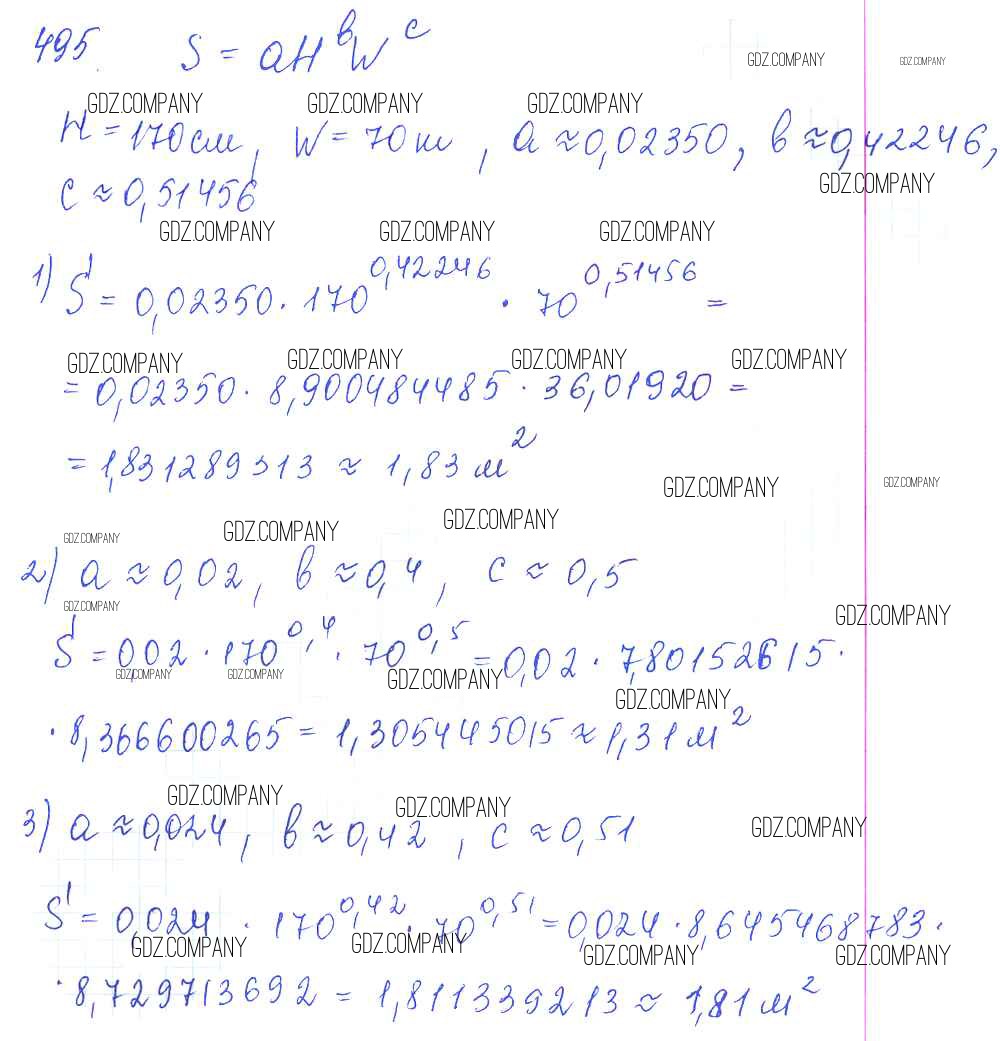 495. S = aH^b W^c
GDZ.COMPANY GDZ.COMPANY
GDZ.COMPANY GDZ.COMPANY GDZ.COMPANY
H = 170 см, W = 70 кг, a ≈ 0,02350, b ≈ 0,42246,
GDZ.COMPANY
c ≈ 0,51456
GDZ.COMPANY GDZ.COMPANY GDZ.COMPANY
1) S = 0,02350 · 170^0,42246 · 70^0,51456 =
GDZ.COMPANY GDZ.COMPANY GDZ.COMPANY GDZ.COMPANY
= 0,02350 · 8,900484485 · 36,01920 =
= 1,831289313 ≈ 1,83 м²
GDZ.COMPANY GDZ.COMPANY
GDZ.COMPANY GDZ.COMPANY GDZ.COMPANY
2) a ≈ 0,02, b ≈ 0,4, c ≈ 0,5
GDZ.COMPANY GDZ.COMPANY
S = 0,02 · 170^0,4 · 70^0,5 = 0,02 · 7,80152615 ·
GDZ.COMPANY GDZ.COMPANY GDZ.COMPANY GDZ.COMPANY
· 8,366600265 = 1,305445015 ≈ 1,31 м²
GDZ.COMPANY GDZ.COMPANY GDZ.COMPANY
3) a ≈ 0,024, b ≈ 0,42, c ≈ 0,51
S = 0,024 · 170^0,42 · 70^0,51 = 0,024 · 8,645468783 ·
GDZ.COMPANY GDZ.COMPANY GDZ.COMPANY GDZ.COMPANY
· 8,729713692 = 1,811339213 ≈ 1,81 м²